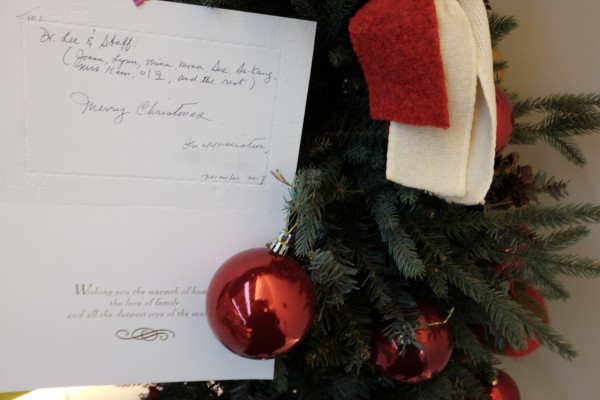 To:
Dr. Lee & Staff:
(Joann, Lynn, Mina, Mona Sue,
Mrs. Kim, 이오, and the rest)
Merry Christmas
In appreciation,
november
Wishing you the warmth of home
the love of family
and all the deepest joys of the